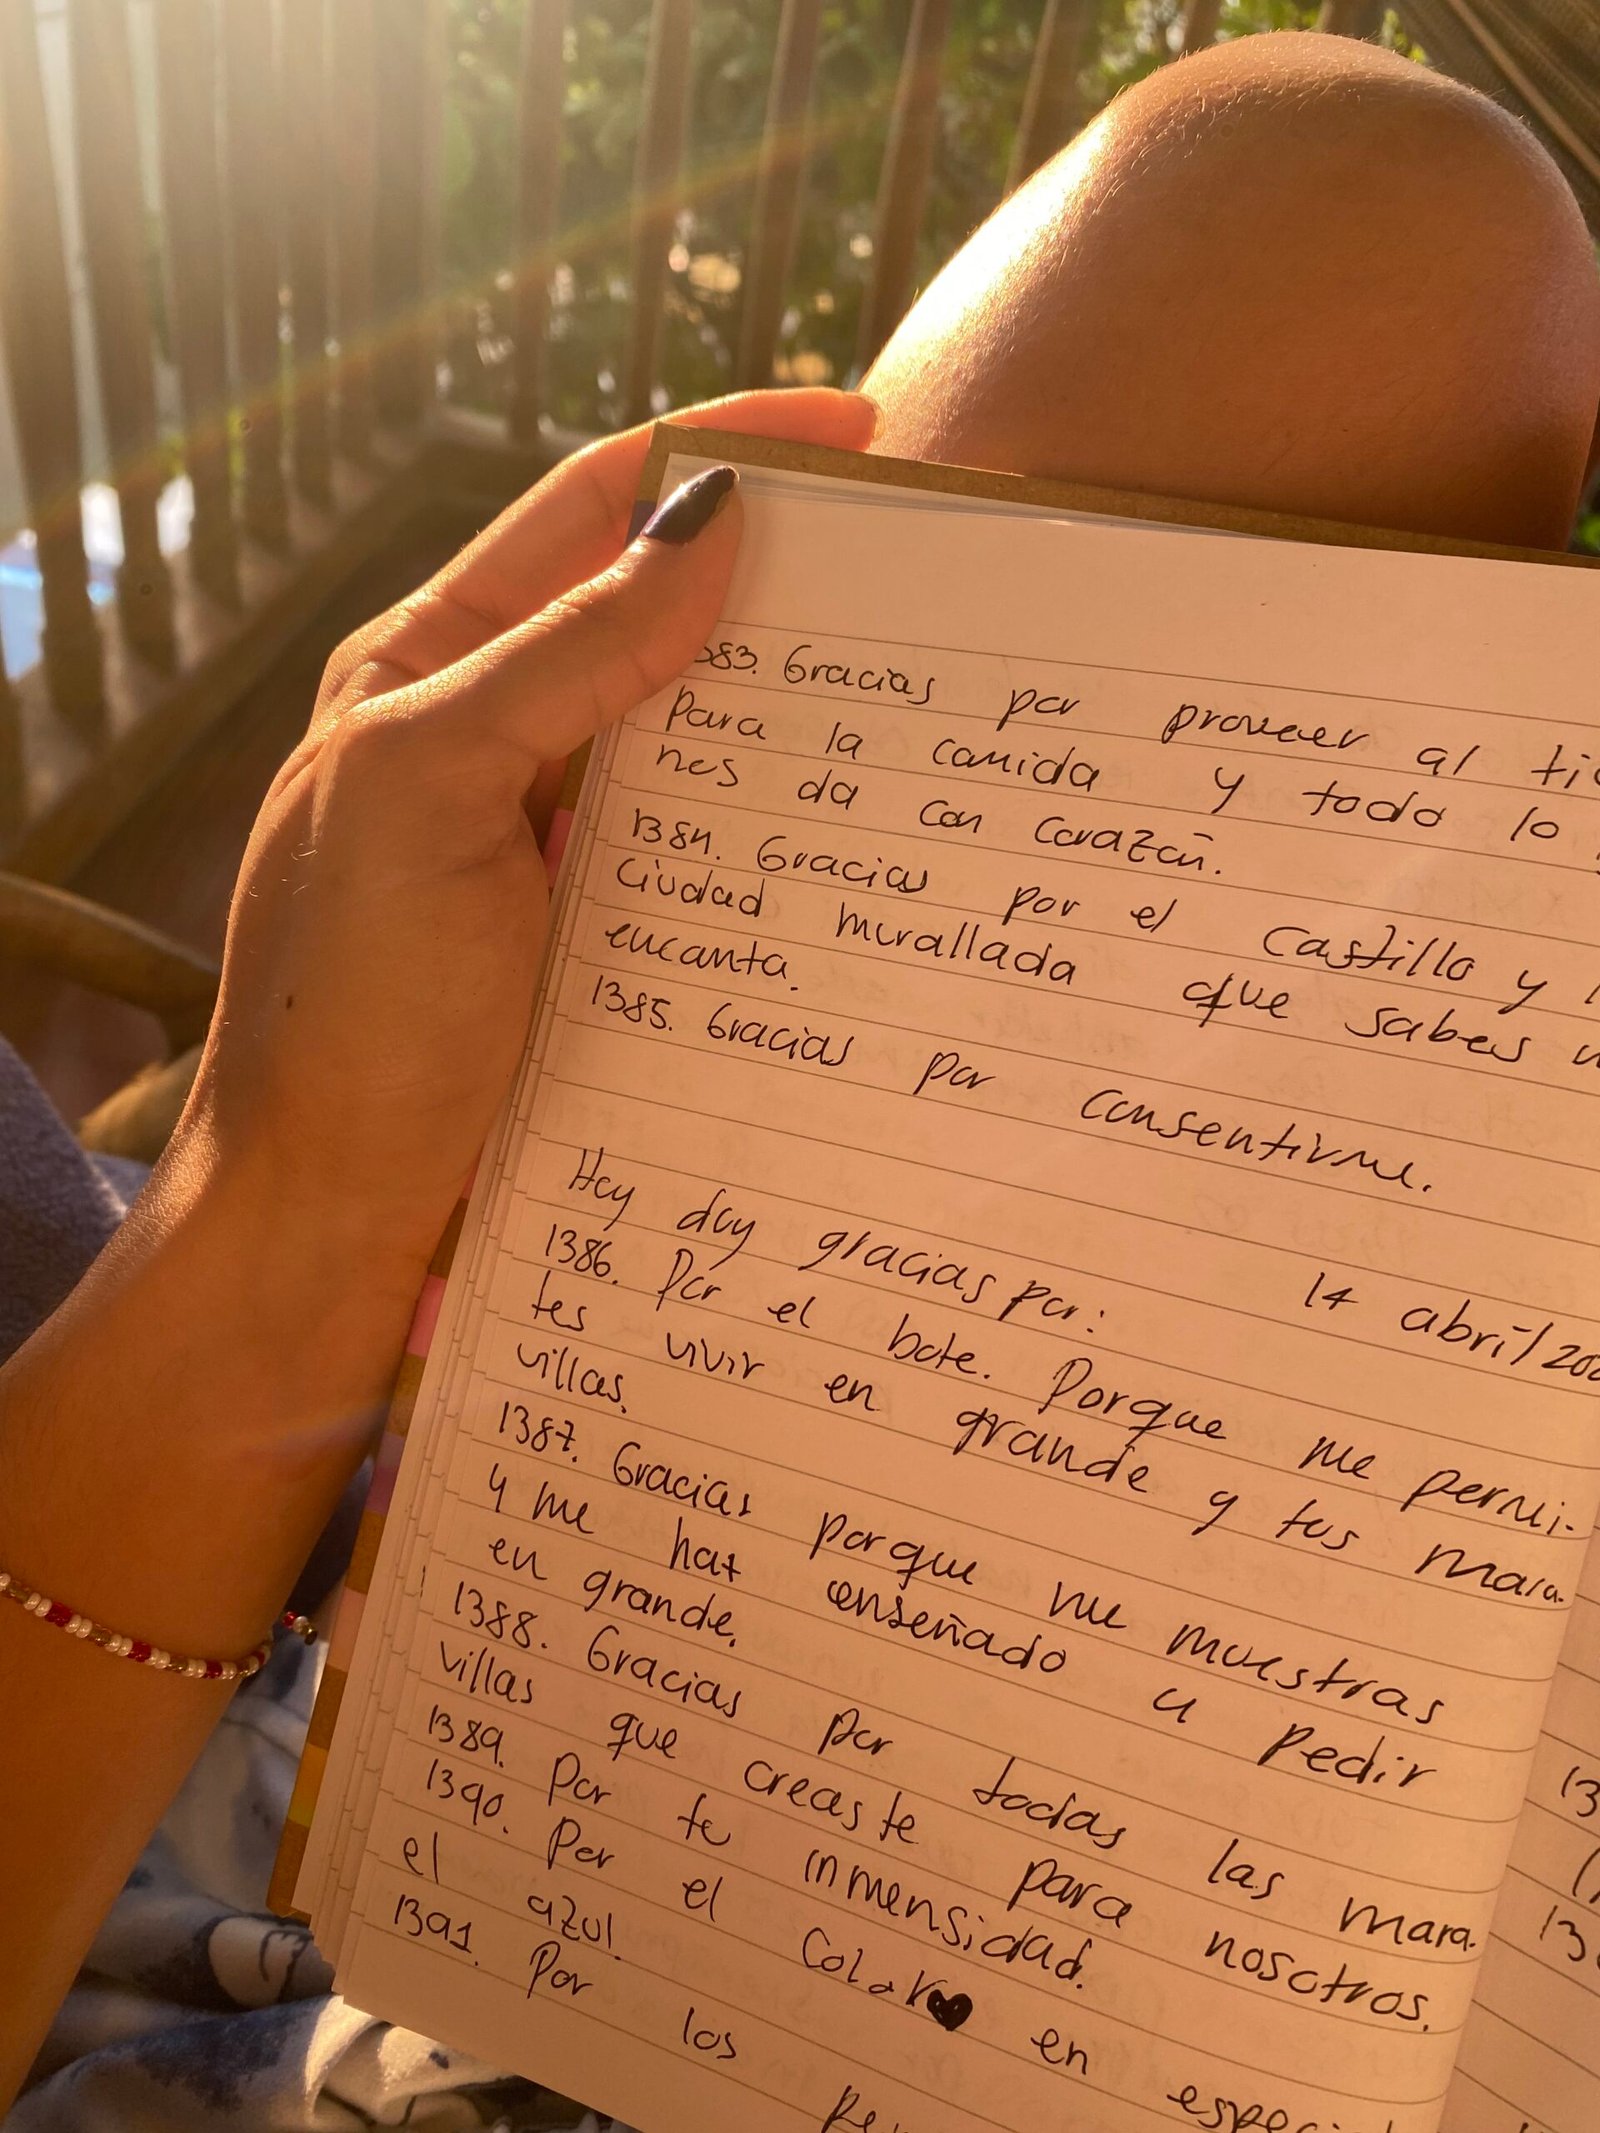 383. Gracias por proveer al
para la comida y todo lo
nos da con corazón.
1384. Gracias por el castillo y
ciudad murallada que sabes
encanta.
1385. Gracias por consentirme.
Hoy doy gracias por: 14 abril/20
1386. Por el bote. Porque me permi-
tes vivir en grande y tus mara-
villas.
1387. Gracias porque me muestras
y me haz enseñado a pedir
en grande.
1388. Gracias por todas las mara-
villas que creaste para nosotros.
1389. Por tu inmensidad.
1390. Por el color♥ en especi
el azul.
1391. Por los
13
13